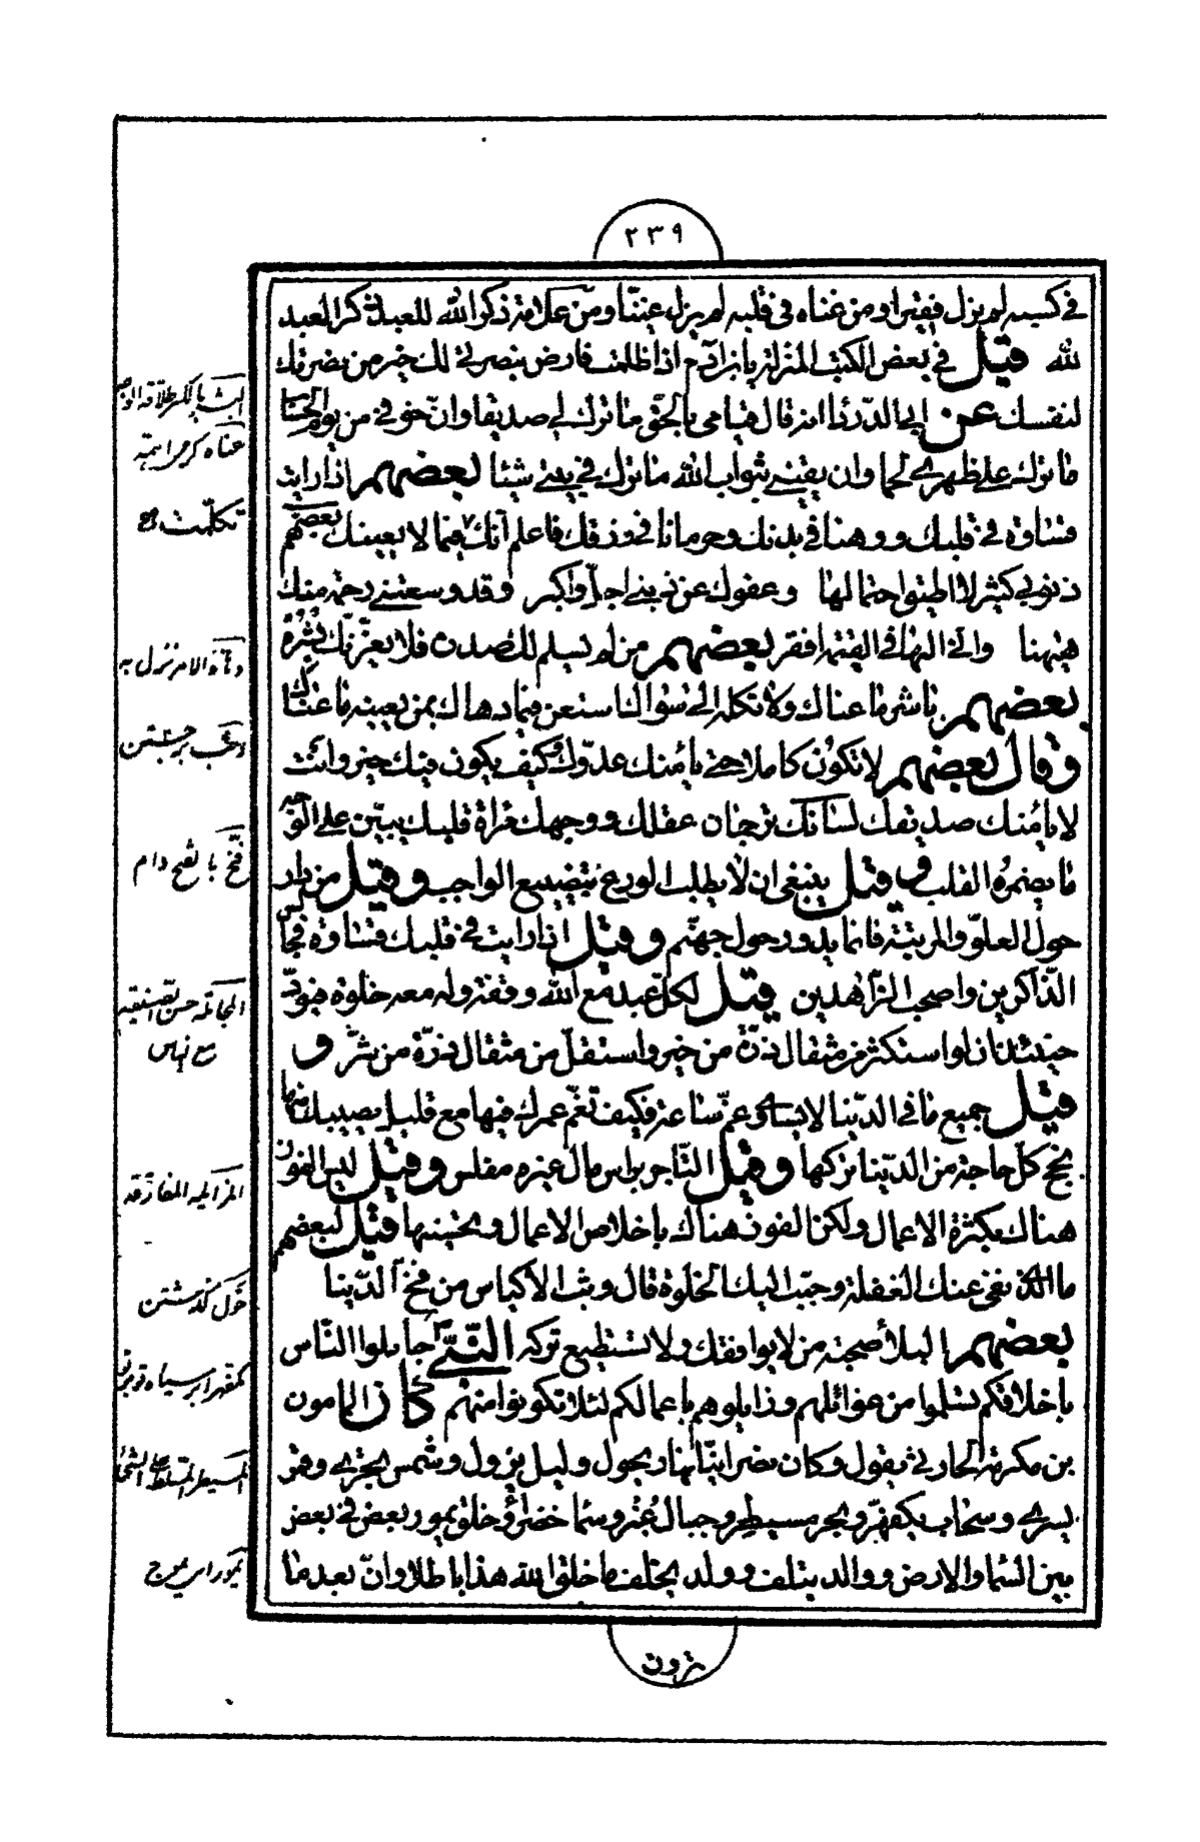 ٢٣٩
في كسبه لم يزل فقيرا ومن غناه في قلبه لم يزل غنيّا ومن علامة ذكر الله للعبد ذكر العبد
لله قيل في بعض الكتب المنزلة يا ابن آدم اذا ظلمت فارض بنصرتي لك خير من نصرتك
لنفسك عن ابي الدرداء انه قال قيامي بالحق ما ترك لي صديقا وانّ خوفي من يوم الحساب
ما ترك على ظهري لحما وان يقيني بثواب الله ما ترك في بيتي شيئا لبعضهم اذا رايت
قساوة في قلبك ووهنا في بدنك وحرمانا في رزقك فاعلم انّك تكلّمت فيما لا يعينك بعضهم
ذنوبي كثير لا اطيق احتمالها وعفوك عن ذنبي اجلّ واكبر وقد وسعتني رحمة منك
ههنا واني اليها في القيمة افقر بعضهم من لم يسلم لك صدره فلا يغرّنّك بشره
بعضهم باشر ما عناك ولا تكله الى سواك استعن فيما دهاك بمن يعينه ما عناك
وقال بعضهم لا تكون كاملا حتى يامنك عدوّك وكيف يكون فيك خير وانت
لا يامنك صديقك لسانك ترجمان عقلك ووجهك مرآة قلبك يبين على الوجه
ما يضمره القلب وقيل ينبغي ان لا يطلب الورع بتضييع الواجب وقيل من دار
حول العلوّ والمرتبة فانما يدور حول جهنّم وقيل اذا رايت في قلبك قساوة فجالس
الذاكرين واصحب الزاهدين قيل لكل عبد مع الله وقفة وله معه خلوة فيودّ
حينئذ ان لو استكثر من مثقال ذرّة من خير واستقلّ من مثقال ذرّة من شرّ و
قيل جميع ما في الدنيا لا يساوي غمّ ساعة فكيف تغمّ عمرك فيها مع قليل يصيبك منها
نجح كلّ حاجة من الدنيا تركها وقيل التاجر براس مال غيره مفلس وقيل ليس الفوز
هناك بكثرة الاعمال ولكن الفوز هناك باخلاص الاعمال وتحسينها قيل لبعضهم
ما الذي نفى عنك الغفلة وحبّب اليك الخلوة قال وثب الاكياس من فخّ الدنيا
بعضهم البلاء صحبة من لا يوافقك ولا تستطيع تركه النبيّ جاملوا الناس
باخلاقكم تسلموا من غوائلهم وزايلوهم باعمالكم لئلا تكونوا منهم كان المامون
بن مكرمة الحارثي يقول وكان نصرانيّا نهار يحول وليل يزول وشمس تجري وقمر
يسري وسحاب يكفهرّ وبحر مسيطر وجبال غبر وسماء خضراء وخلق يمور بعض في بعض
بين السماء والارض ووالد يتلف وولد يخلف ما خلق الله هذا باطلا وانّ بعد ما
ترون
عناه كرم اهمّه
تكلّمت صح
دهاه الامر نزل به
وثب برجستن
فخّ بالفتح دام
المزايلة المفارقة
حول گذشتن